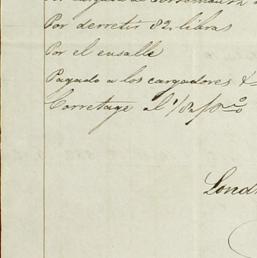 Por derretir 82 libras
Por el ensalle
Pagado a los cargadores &
Corretage al 1/8 p%
Lond